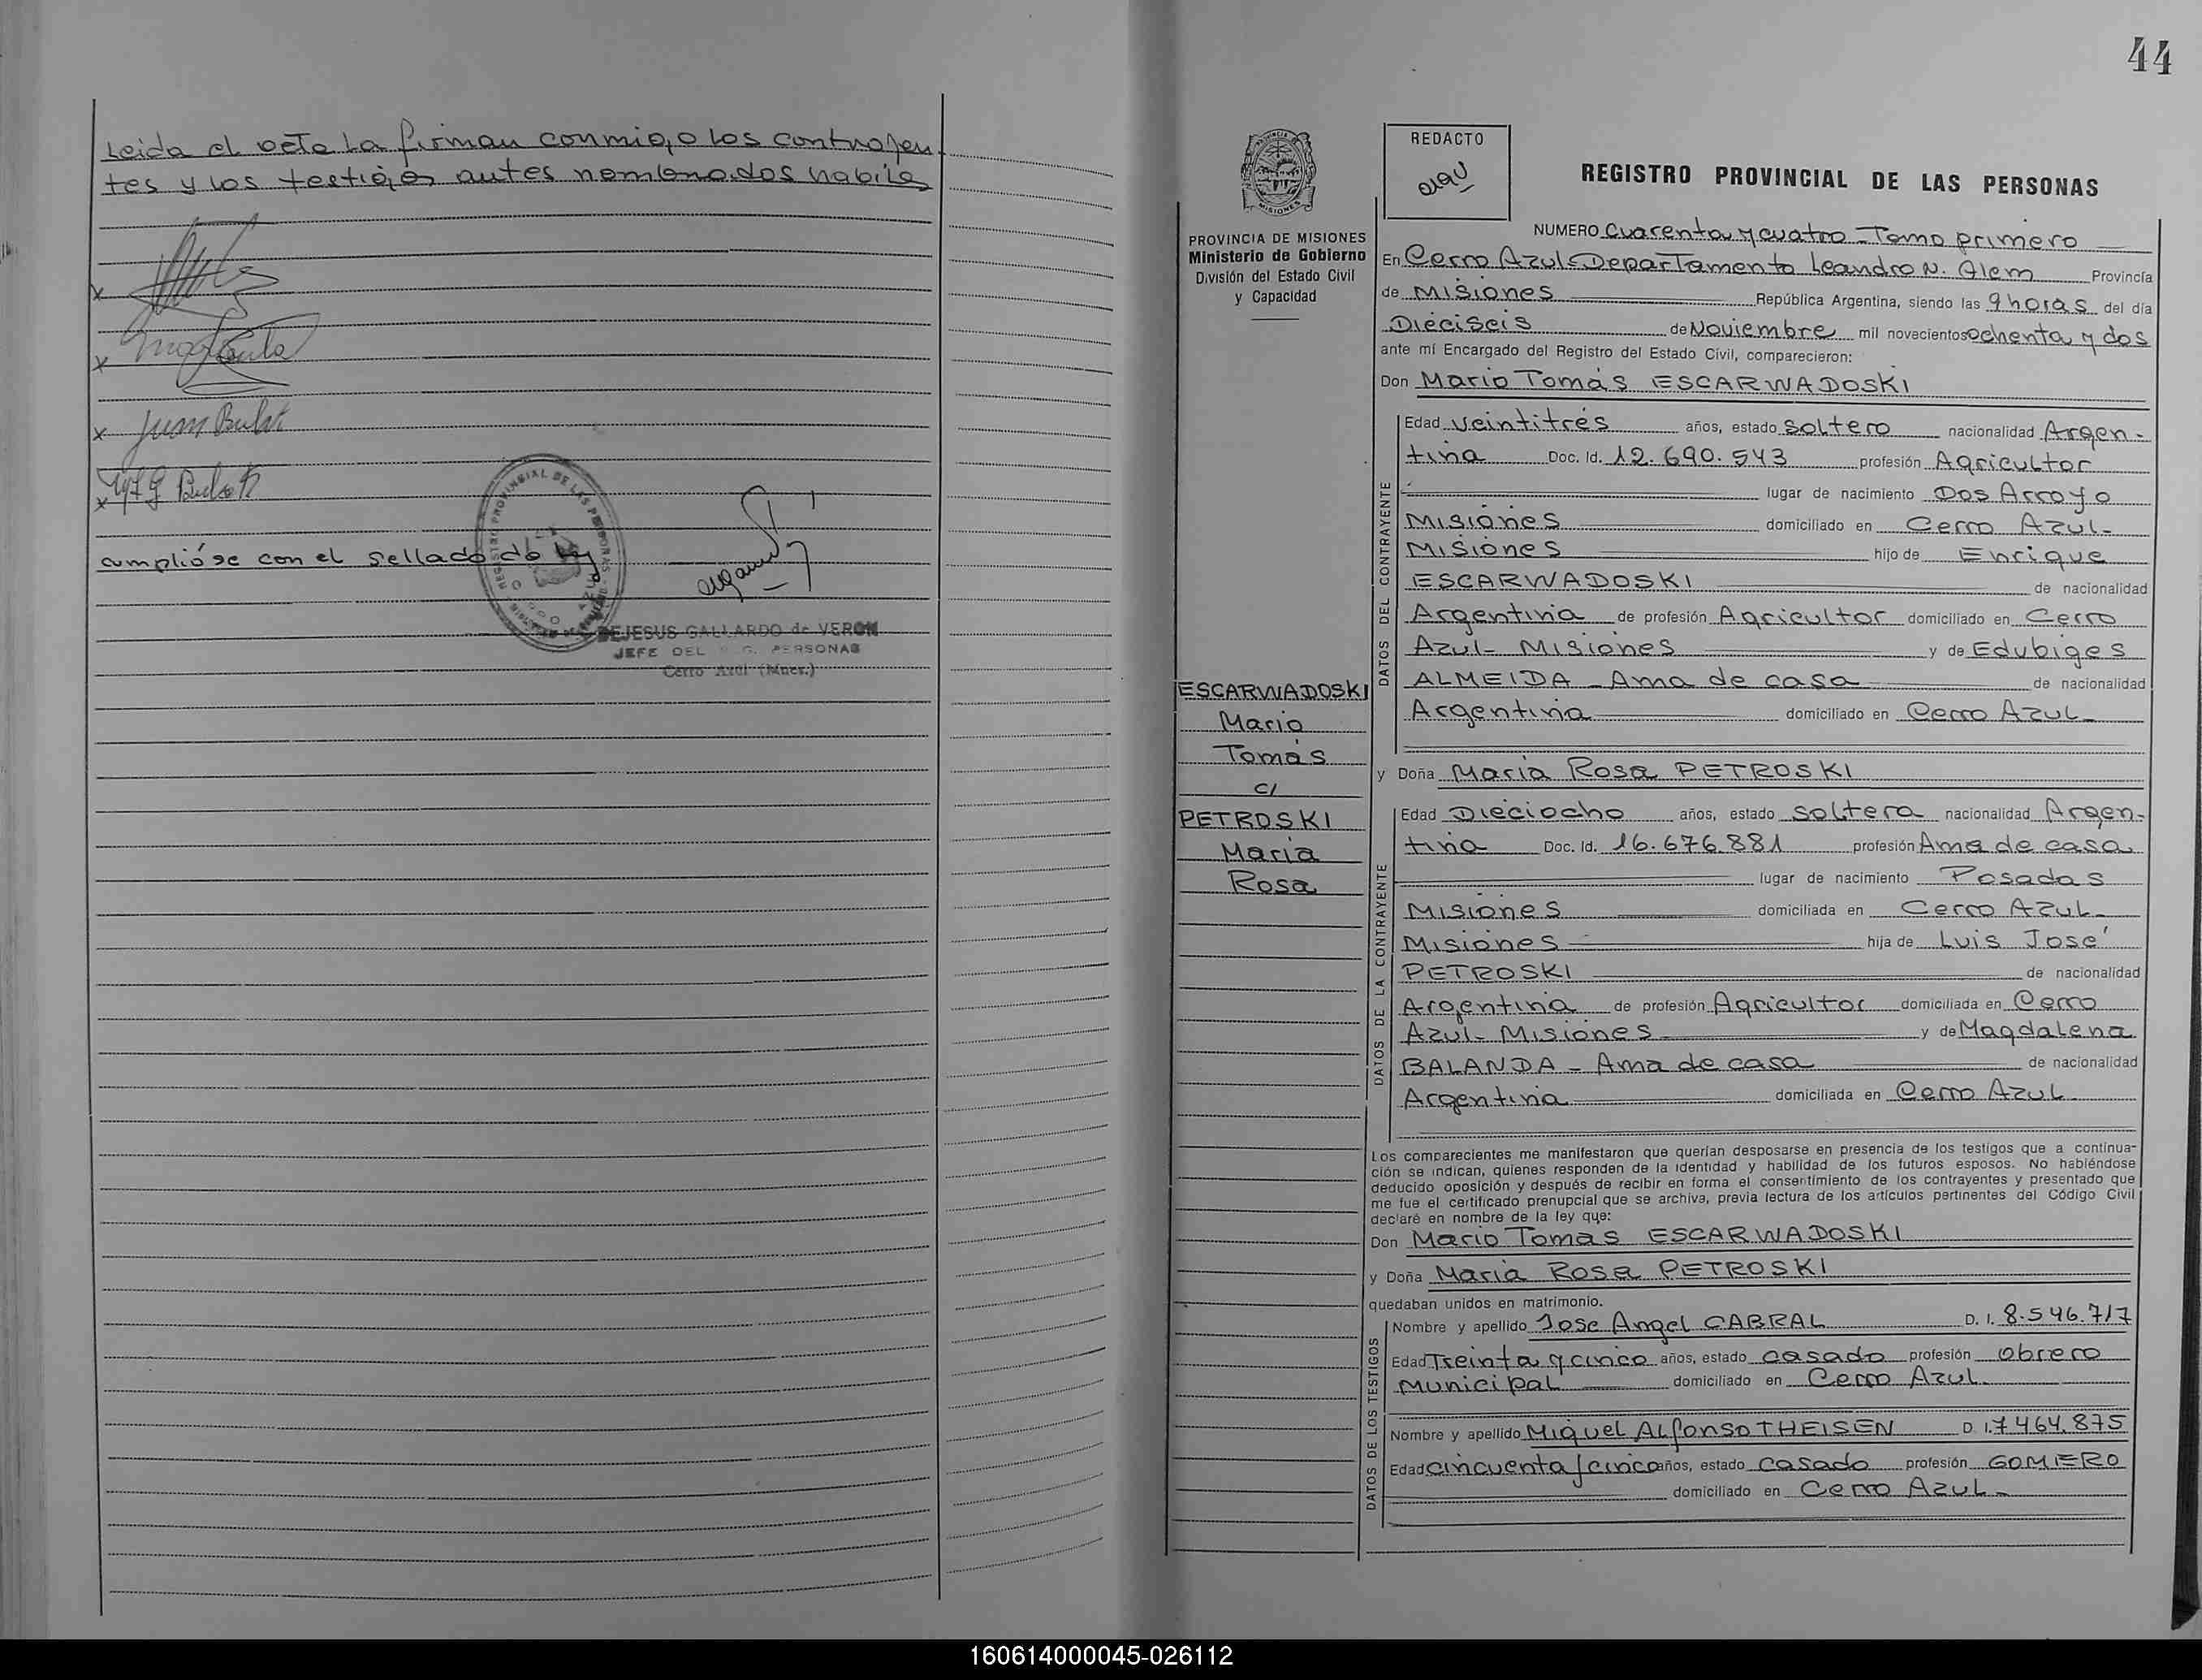 Leida el acta La firman conmigo los contrayen
tes y los testigos antes nombrados habiles
x
x
x Juan
x
cumplióse con el sellado de ley
REGISTRO PROVINCIAL DE LAS PERSONAS
DEJESUS GALLARDO de VERON
JEFE DEL R. G. PERSONAS
Cerro Azul (Mnes.)
44
PROVINCIA DE MISIONES
Ministerio de Gobierno
División del Estado Civil
y Capacidad
ESCARWADOSKI
Mario
Tomás
c/
PETROSKI
Maria
Rosa
REDACTO
REGISTRO PROVINCIAL DE LAS PERSONAS
NUMERO Cuarenta y cuatro - Tomo primero
En Cerro Azul-Departamento Leandro N. Alem Provincia
de Misiones República Argentina, siendo las 9 horas del día
Dieciseis de Noviembre mil novecientos ochenta y dos
ante mí Encargado del Registro del Estado Civil, comparecieron:
Don Mario Tomás ESCARWADOSKI
DATOS DEL CONTRAYENTE
Edad veintitrés años, estado soltero nacionalidad Argen-
tina Doc. Id. 12.690.543 profesión Agricultor
lugar de nacimiento Dos Arroyo
Misiones domiciliado en Cerro Azul-
Misiones hijo de Enrique
ESCARWADOSKI de nacionalidad
Argentina de profesión Agricultor domiciliado en Cerro
Azul- Misiones y de Edubiges
ALMEIDA - Ama de casa de nacionalidad
Argentina domiciliado en Cerro Azul-
y Doña Maria Rosa PETROSKI
DATOS DE LA CONTRAYENTE
Edad Dieciocho años, estado soltera nacionalidad Argen-
tina Doc. Id. 16.676.881 profesión Ama de casa
lugar de nacimiento Posadas
Misiones domiciliada en Cerro Azul-
Misiones hija de Luis José
PETROSKI de nacionalidad
Argentina de profesión Agricultor domiciliada en Cerro
Azul- Misiones y de Magdalena
BALANDA - Ama de casa de nacionalidad
Argentina domiciliada en Cerro Azul
Los comparecientes me manifestaron que querían desposarse en presencia de los testigos que a continua-
ción se indican, quienes responden de la identidad y habilidad de los futuros esposos. No habiéndose
deducido oposición y después de recibir en forma el consentimiento de los contrayentes y presentado que
me fue el certificado prenupcial que se archiva, previa lectura de los artículos pertinentes del Código Civil
declaré en nombre de la ley que:
Don Mario Tomas ESCARWADOSKI
y Doña Maria Rosa PETROSKI
quedaban unidos en matrimonio.
DATOS DE LOS TESTIGOS
Nombre y apellido Jose Angel CABRAL D. I. 8.546.717
Edad Treinta y cinco años, estado casado profesión Obrero
Municipal domiciliado en Cerro Azul.
Nombre y apellido Miguel Alfonso THEISEN D. I. 7464.875
Edad cincuenta y cinco años, estado casado profesión GOMERO
domiciliado en Cerro Azul-
160614000045-026112